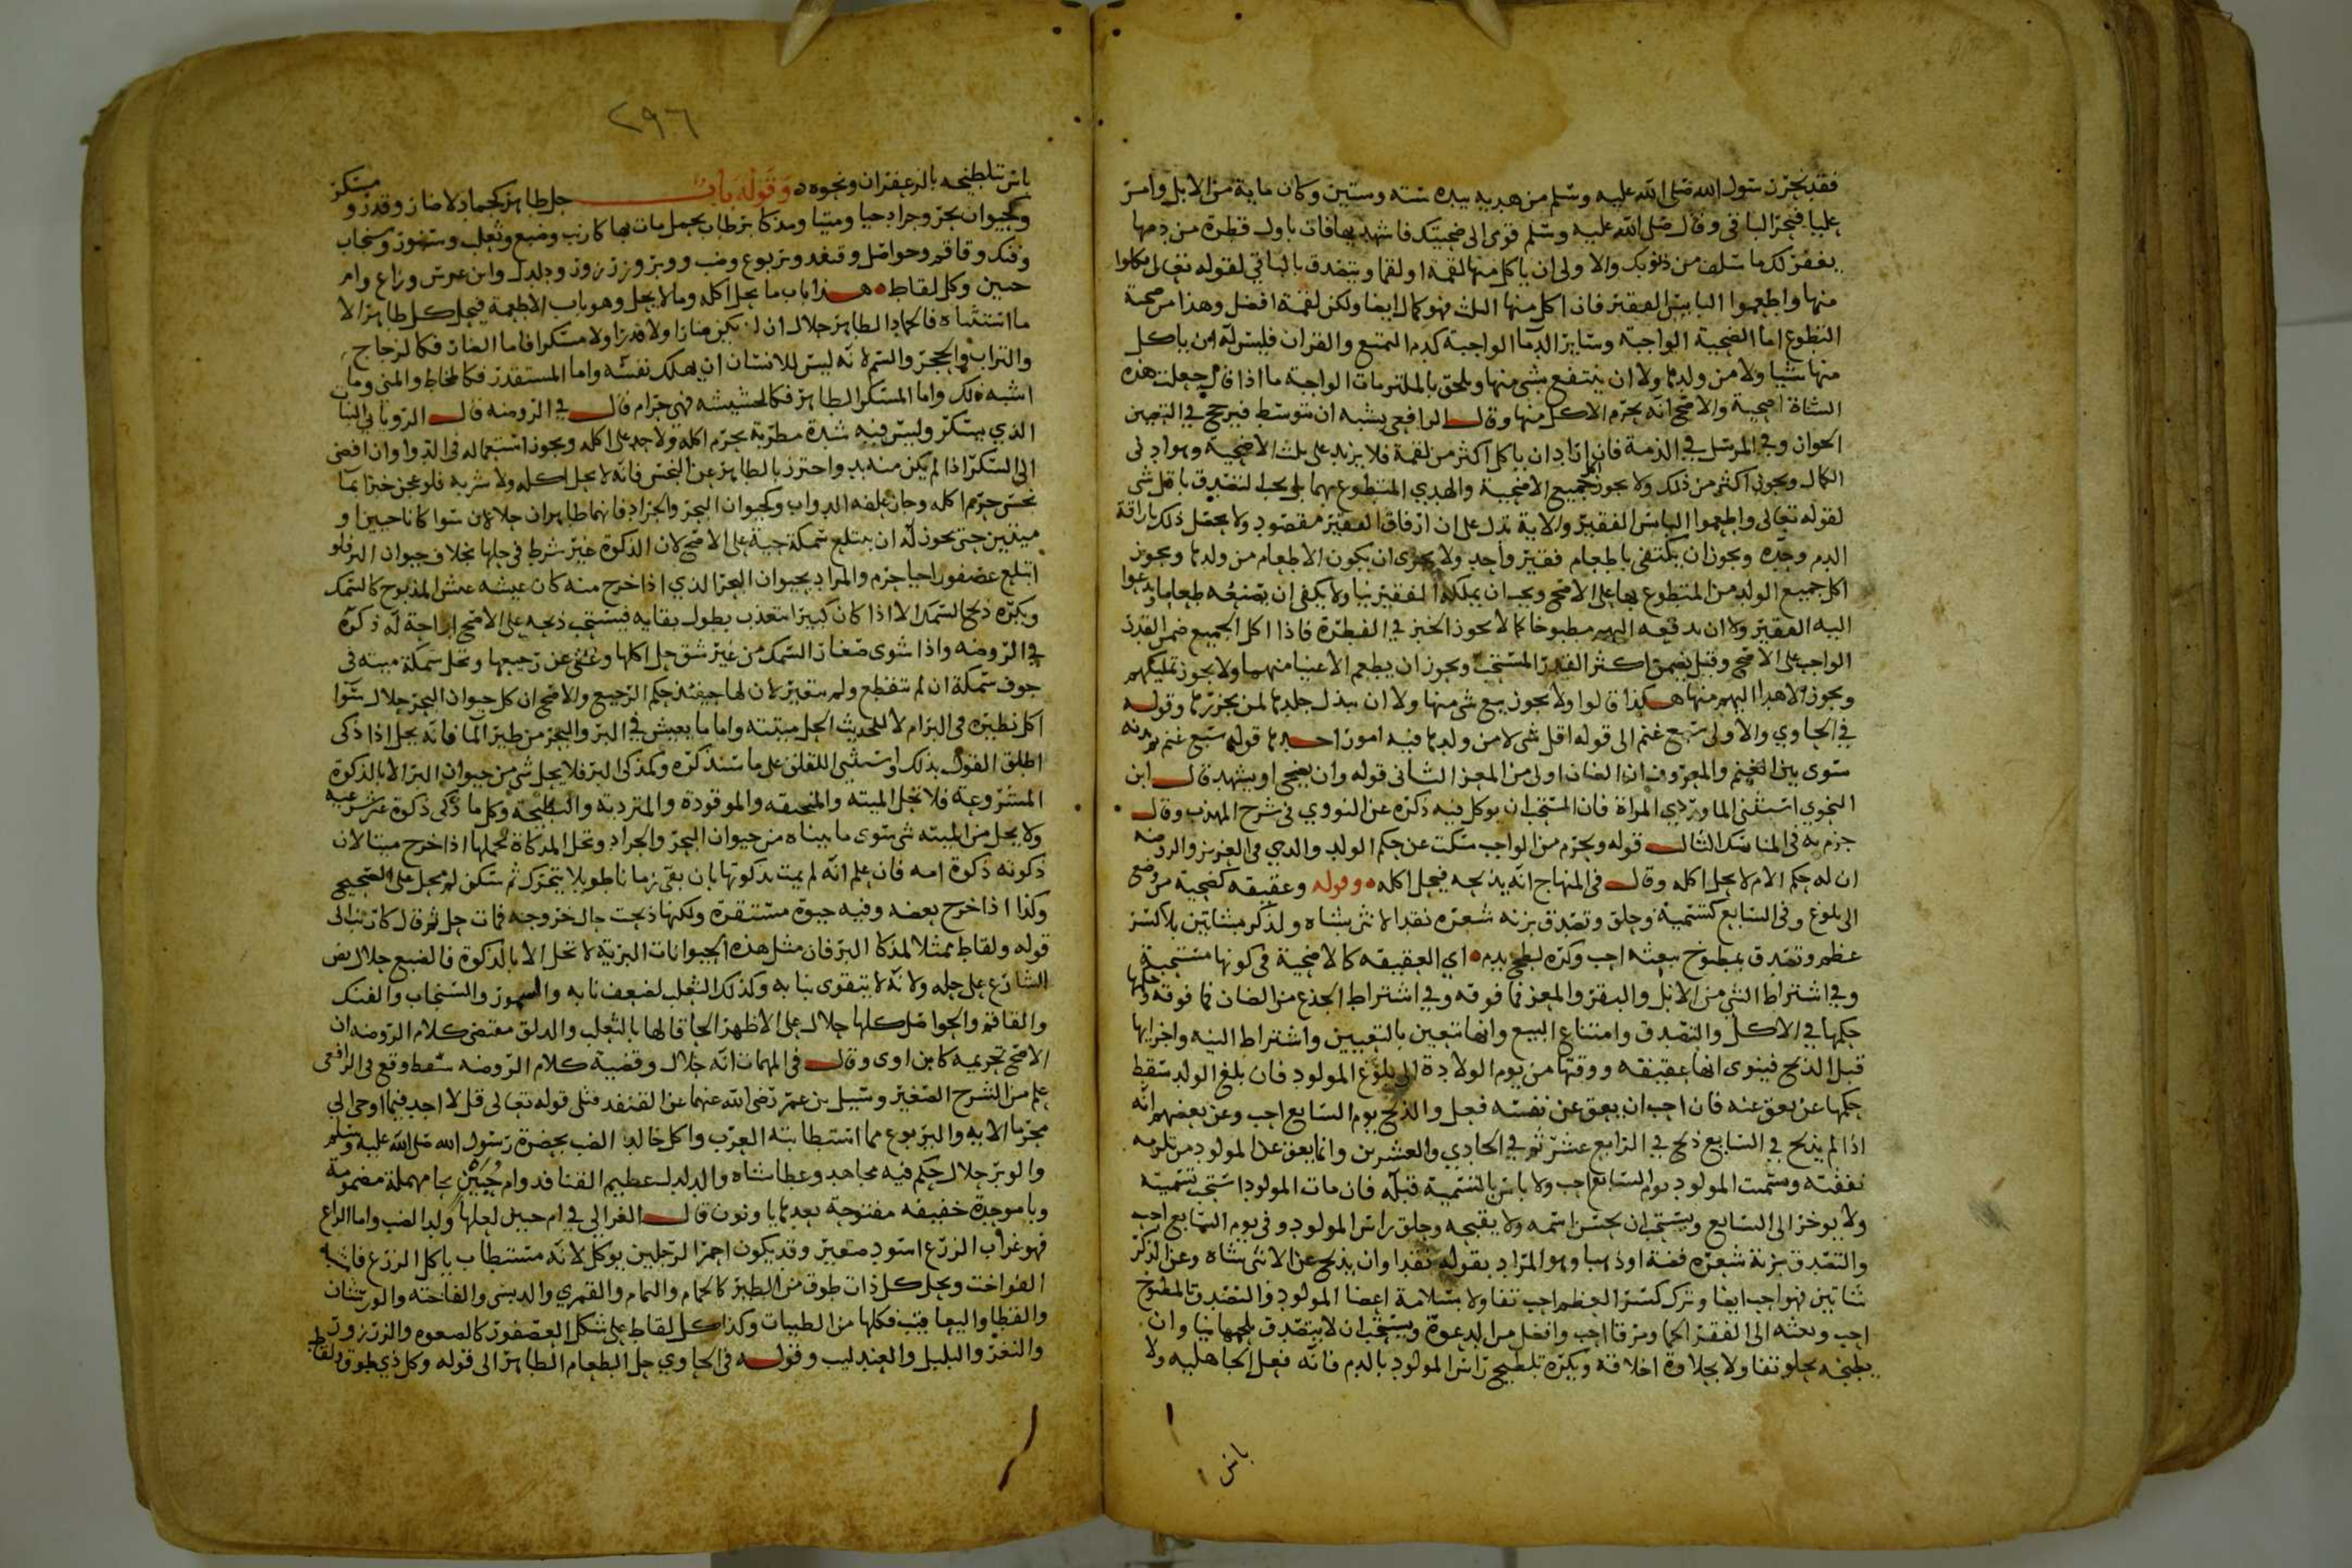 فقد نحر رسول الله صلى الله عليه وسلم من هديه بيده ستة وستين وكان ماية من الابل وامر
عليا فنحر الباقي وقال صلى الله عليه وسلم قومى الى ضحيتك فاشهديها فات باول قطرة من دمها
يغفر لك ما سلف من ذنوبك والاولى ان ياكل منها لقمة او لقما ويتصدق بالباقي لقوله تعالى فكلوا
منها واطعموا البايس الفقير فان اكل منها الثلث فهو كمال ايضا ولكن لقمة افضل وهذا من ضحية
التطوع اما الضحية الواجبة وساير الدما الواجبة كدم التمتع والقران فليس له ان ياكل
منها شيا ولا من ولدها ولا ان ينتفع بشى منها ويلحق بالملتزمات الواجبة ما اذا قال جعلت هذه
الشاة اضحية والاصح انه يحرم الاكل منها وقال الرافعى يشبه ان يتوسط فيرجح في التعيين
الجواز وفي المرسل في الذمة فان اراد ان ياكل اكثر من لقمة فلا يزيد على ثلث الاضحية وهو ادنى
الكمال ويجوز اكثر من ذلك ولا يجوز اكل جميع الاضحية والهدي المتطوع بهما بل يجب التصدق باقل شى
لقوله تعالى واطعموا البايس الفقير والاية تدل على ان ارفاق الفقير مقصود ولا يحصل ذلك باراقة
الدم وحده ويجوز ان يكتفى باطعام فقير واحد ولا يجزى ان يكون الاطعام من ولدها ويجوز
اكل جميع الولد من المتطوع بها على الاصح ويجب ان يملكه الفقير نيا ولا يكفى ان يصنعه طعاما ويدعوا
اليه الفقير ولا ان يدفعه اليهم مطبوخا كما لا يجوز الخبز في الفطرة فاذا اكل الجميع ضمن القدر
الواجب على الاصح وقيل يضمن اكثر القدر المستحب ويجوز ان يطعم الاغنيا منهما ولا يجوز تمليكهم
ويجوز الاهدا اليهم منها هكذا قالوا ولا يجوز بيع شى منها ولا ان يبذل جلدها لمن يجزرها وقوله
في الحاوي والاولى سبع غنم الى قوله اقل شى لا من ولدها فيه امور احدها قوله سبع غنم
سوى بين الغنم والمعروف ان الضان اولى من المعز الثانى قوله وان يضحى او يشهد قال ابن
النحوي استثنى الماوردي المراة فان المستحب ان يوكل فيه ذكره عن النووي فى شرح المهذب وقال
جزم به فى المناسك الثالث قوله ويحرم من الواجب سكت عن حكم الولد والدي فى العزيز والروضه
ان له حكم الام لا يحل اكله وقال فى المنهاج انه يذبحه فيحل اكله وقوله وعقيقه كضحية من وضع
الى بلوغ وفى السابع كتسمية وحلق وتصدق بزنه شعره نقدا لانثى شاه ولذكر شاتين بلا كسر
عظم وتصدق بمطبوخ يبعثه احب وكره لطخ بدم اي العقيقه كالاضحية فى كونها مستحبة
وفي اشتراط الثني من الابل والبقر والمعز فما فوقه وفي اشتراط الجذع من الضان فما فوقه وحكمها
حكمها في الاكل والتصدق وامتناع البيع وانها تتعين بالتعيين واشتراط النيه واجزايها
قبل الذبح فينوى انها عقيقه ووقتها من يوم الولادة الى بلوغ المولود فان بلغ الولد سقط
حكمها عن يعق عنه فان احب ان يعق عن نفسه فعل والذبح يوم السابع احب وعن بعضهم انه
اذا لم يذبح في السابع ذبح في الرابع عشر ثم في الحادي والعشرين وانما يعق عن المولود من تلزمه
نفقته وسميت المولود يوم السابع احب ولا باس بالتسمية قبله فان مات المولود استحب تسميته
ولا يوخر الى السابع ويستحب ان يحسن اسمه ولا يقبحه وحلق راس المولود وفى يوم السابع احب
والتصدق بزنة شعره فضة او ذهبا وهو المراد بقوله نقدا وان يذبح عن الانثى شاه وعن الذكر
شاتين فهو احب ايضا وترك كسر العظم احب تفاولا بسلامة اعضا المولود والتصدق بالمطبوخ
احب وبعثه الى الفقرا لحما ومرقا احب وافضل من الدعوة ويستحب ان لا يتصدق بلحمها نيا وان
يطبخه بحلو تفاولا بحلاوة اخلاقه ويكره تلطيخ راس المولود بالدم فانه فعل الجاهليه ولا
باس
٢٩٦
باس بتلطيخه بالزعفران ونحوه وقوله باب حل طاهر كجماد لا ضار وقذر ومسكر
وكحيوان بحر وجراد حيا وميتا ومذكا بر طاب بحمل مات بها كارنب وضبع وثعلب وسمور وسنجاب
وفنك وقاقم وحواصل وقنفد ويربوع وضب ووبر وزرزور ودلدل وابن عرس وزاغ وام
حبين وكل لقاط هذا باب ما يحل اكله وما لا يحل وهو باب الاطعمة فيحل كل طاهر الا
ما استثناه فالجماد الطاهر حلال ان لم يكن ضارا ولا قذرا ولا مسكرا فاما الضار فكالزجاج
والتراب والحجر والسم لانه ليس للانسان ان يهلك نفسه واما المستقذر فكالمخاط والمنى وما
اشبه ذلك واما المسكر الطاهر فكالحشيشه فهي حرام قال في الروضه قال الروياني النبات
الذي يسكر وليس فيه شدة مطربة يحرم اكله ولا حد على اكله ويجوز استعماله فى الدوا وان افضى
الى السكر اذا لم يكن منه بد واحترز بالطاهر عن النجس فانه لا يحل اكله ولا شربه فلو عجن خبزا بما
نجس حرم اكله وجاز علفه الدواب وكحيوان البحر والجراد فانهما طاهران حلالان سوا كانا حيين او
ميتين حتى يجوز له ان يبتلع سمكة حية على الاصح لان الذكوة غير شرط فى حلها بخلاف حيوان البر فلو
ابتلع عصفورا حيا حرم والمراد بحيوان البحر الذي اذا خرج منه كان عيشه عيش المذبوح كالسمك
ويكره ذبح السمك الا اذا كان كبيرا يتعذب بطول بقايه فيستحب ذبحه على الاصح اراحة له ذكره
في الروضه واذا شوى صغار السمك من غير شق حل اكلها وعفى عن رجيعها وتحل سمكة ميته فى
جوف سمكة ان لم تتقطع ولم تتغير لان لها حينئذ حكم الرجيع والاصح ان كل حيوان البحر حلال سوا
اكل نظيره فى البر ام لا للحديث الحل ميتته واما ما يعيش في البر والبحر من طير الما فانه يحل اذا ذكى
اطلق القول بذلك واستثنى اللقلق على ما سنذكره وكمذكى البر فلا يحل شى من حيوان البر الا بالذكوة
المشروعة فلا تحل الميته والمنخنقه والموقوذة والمتردية والنطيحة وكل ما ذكى ذكوة غير شرعيه
ولا يحل من الميته شى سوى ما بيناه من حيوان البحر والجراد وتحل المذكاة بحملها اذا خرج ميتا لان
ذكوته ذكوة امه فان علم انه لم يمت بذكوتها بان بقى زمانا طويلا يتحرك ثم سكن لم يحل على الصحيح
وكذا اذا خرج بعضه وفيه حيوة مستقرة ولكنها ذبحت حال خروجه فمات حل ثم قال كارنب الى
قوله ولقاط ممثلا لمذكا البر فان مثل هذه الحيوانات البرية لا تحل الا بالذكوة فالضبع حلال نص
الشارع على حله ولانه لا يتقوى بنابه وكذلك الثعلب لضعف نابه والسمور والسنجاب والفنك
والقاقم والحواصل كلها حلال على الاظهر الحاقا لها بالثعلب والدلق مقتضى كلام الروضه ان
الاصح تحريمه كابن اوى وقال فى المهمات انه حلال وقضية كلام الروضه سقط وقع فى الرافعى
علم من الشرح الصغير وسيل بن عمر رضى الله عنهما عن القنفد فتلى قوله تعالى قل لا اجد فيما اوحى الي
محرما الايه واليربوع مما استطابته العرب واكل خالد الضب بحضرة رسول الله صلى الله عليه وسلم
والوبر حلال حكم فيه مجاهد وعطا بشاه والدلدل عظيم القنافد وام حبين بحا مهملة مضمومة
وبا موحدة خفيفه مفتوحة بعدها يا ونون قال الغزالي في ام حبين لعلها ولد الضب واما الزاغ
فهو غراب الزرع اسود صغير وقد يكون احمر الرجلين يوكل لانه مستطاب ياكل الزرع فاشبه
الفواخت ويحل كل ذات طوق من الطير كالحمام واليمام والقمري والدبسى والفاخته والورشان
والقطا واليعاقيب فكلها من الطيبات وكذا كل لقاط على شكل العصفور كالصعوه والزرزور
والنغر والبلبل والعندليب وقوله فى الحاوي حل الطعام الطاهر الى قوله وكل ذي طوق ولقاط